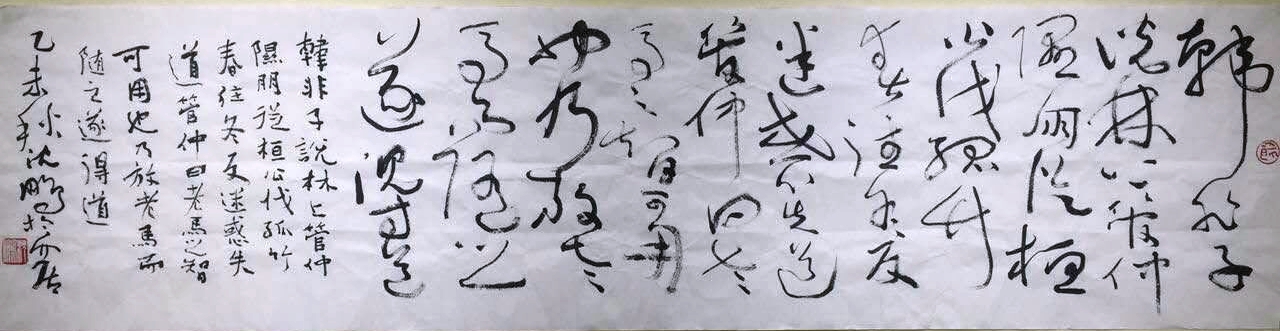 韓非子
說林上管仲
隰朋從桓
公伐孤竹
春往冬反
迷惑失道
管仲曰老
馬之智可用
也乃放老
馬而隨之
遂得道
韓非子說林上管仲
隰朋從桓公伐孤竹
春往冬反迷惑失
道管仲曰老馬之智
可用也乃放老馬而
隨之遂得道
乙未沈鵬於介居